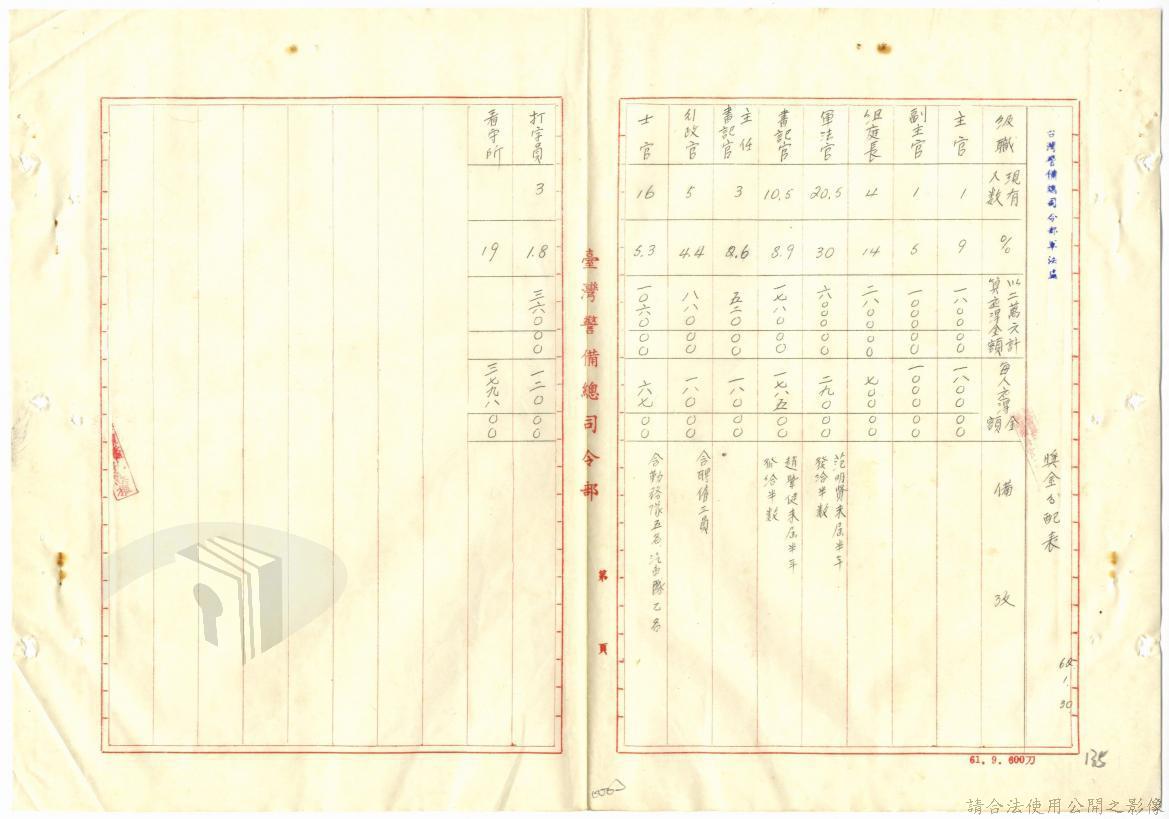 台灣警備總司令部軍法處
獎金分配表
級職 現有人數 % 以二萬元計算應得金額 每人應得金額 備 考
主官 1 9 一八〇〇〇〇 一八〇〇〇〇
副主官 1 5 一〇〇〇〇〇 一〇〇〇〇〇
組庭長 4 14 二八〇〇〇〇 七〇〇〇〇
軍法官 20.5 30 六〇〇〇〇〇 二九〇〇〇 范明賢未屆半年發給半數
書記官 10.5 8.9 一七八〇〇〇 一七八五〇〇 趙 未屆半年發給半數
主任書記官 3 2.6 五二〇〇〇 一八〇〇〇
行政官 5 4.4 八八〇〇〇 一八〇〇〇 含聘僱二員
士官 16 5.3 一〇六〇〇〇 六七〇〇 含勤務隊五名汽車隊乙名
臺灣警備總司令部
第 頁
打字員 3 1.8 三六〇〇〇 一二〇〇〇
看守所 19 三七九八〇〇
61. 9. 600刀
135
請合法使用公開之影像